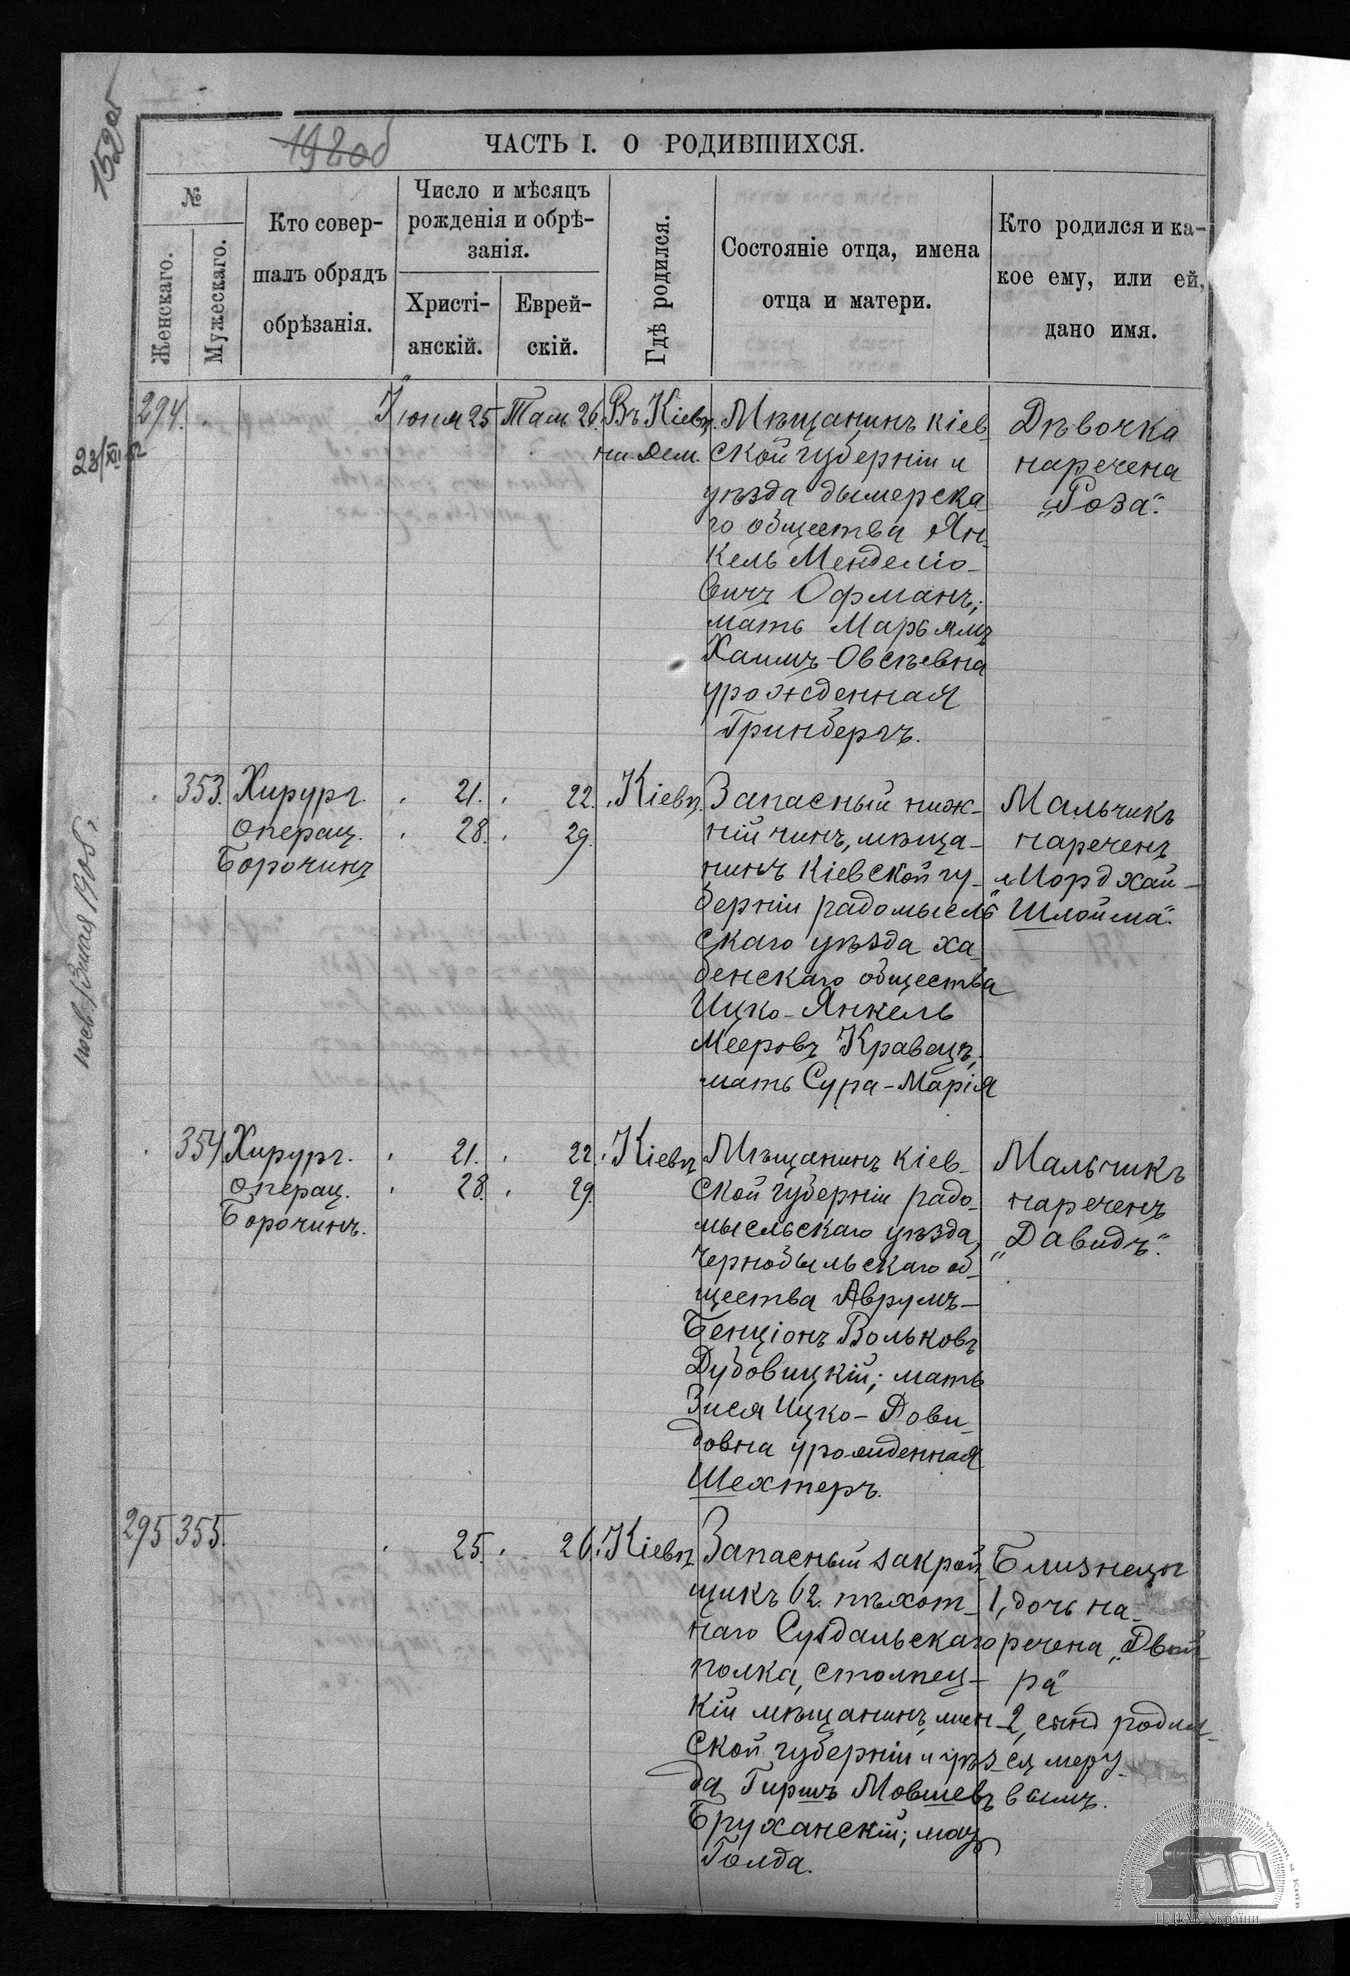 152об
192об
ЧАСТЬ I. О РОДИВШИХСЯ.
№
Женскаго.
Мужескаго.
Кто совер-
шалъ обрядъ
обрѣзанія.
Число и мѣсяцъ
рожденія и обрѣ-
занія.
Христі-
анскій.
Еврей-
скій.
Гдѣ родился.
Состояніе отца, имена
отца и матери.
Кто родился и ка-
кое ему, или ей,
дано имя.
294. Іюня 25 Там 26. Въ Кіевѣ
на Дем.
Мѣщанинъ кіев-
ской губерніи и
уѣзда дымерска
го общества Ян-
кель Менделіо-
вичъ Офманъ;
мать Марьямъ
Хаимъ-Овсѣевна
урожденная
Гринбергъ.
Дѣвочка
наречена
„Роза".
353. Хирург.
Операц.
Борочинъ
21. 22. Кіевѣ
28. 29.
Запасный ниж-
ній чинъ, мѣща-
нинъ Кіевской гу-
берніи радомысль
скаго уѣзда ха-
бенскаго общества
Ицко-Янкель
Мееровъ Кравецъ;
мать Сура-Марія
Мальчикъ
нареченъ
„Мордхай-
Шлойма".
354 Хирург.
Операц.
Борочинъ.
21. 22. Кіевѣ
28. 29.
Мѣщанинъ кіев-
ской губерніи радо-
мысльскаго уѣзда,
чернобыльскаго об-
щества Аврумъ-
Бенціонъ Вольковъ
Дубовицкій; мать
Зися Ицко-Дови-
довна урожденная
Шехтеръ.
Мальчикъ
нареченъ
„Давидъ".
295 355. 25. 26. Кіевѣ
Запасный закрой-
щикъ 62. пѣхот-
наго Суздальскаго
полка, столпец-
кій мѣщанинъ, мин-
ской губерніи и уѣз-
да Гиршъ Мовшевъ
Бруханскій; мать
Голда.
Близнецы
1, дочь на-
речена „Двой-
ра"
2, сынъ родил-
ся мерт-
вымъ.
23/XII 52
ЦДІАК України